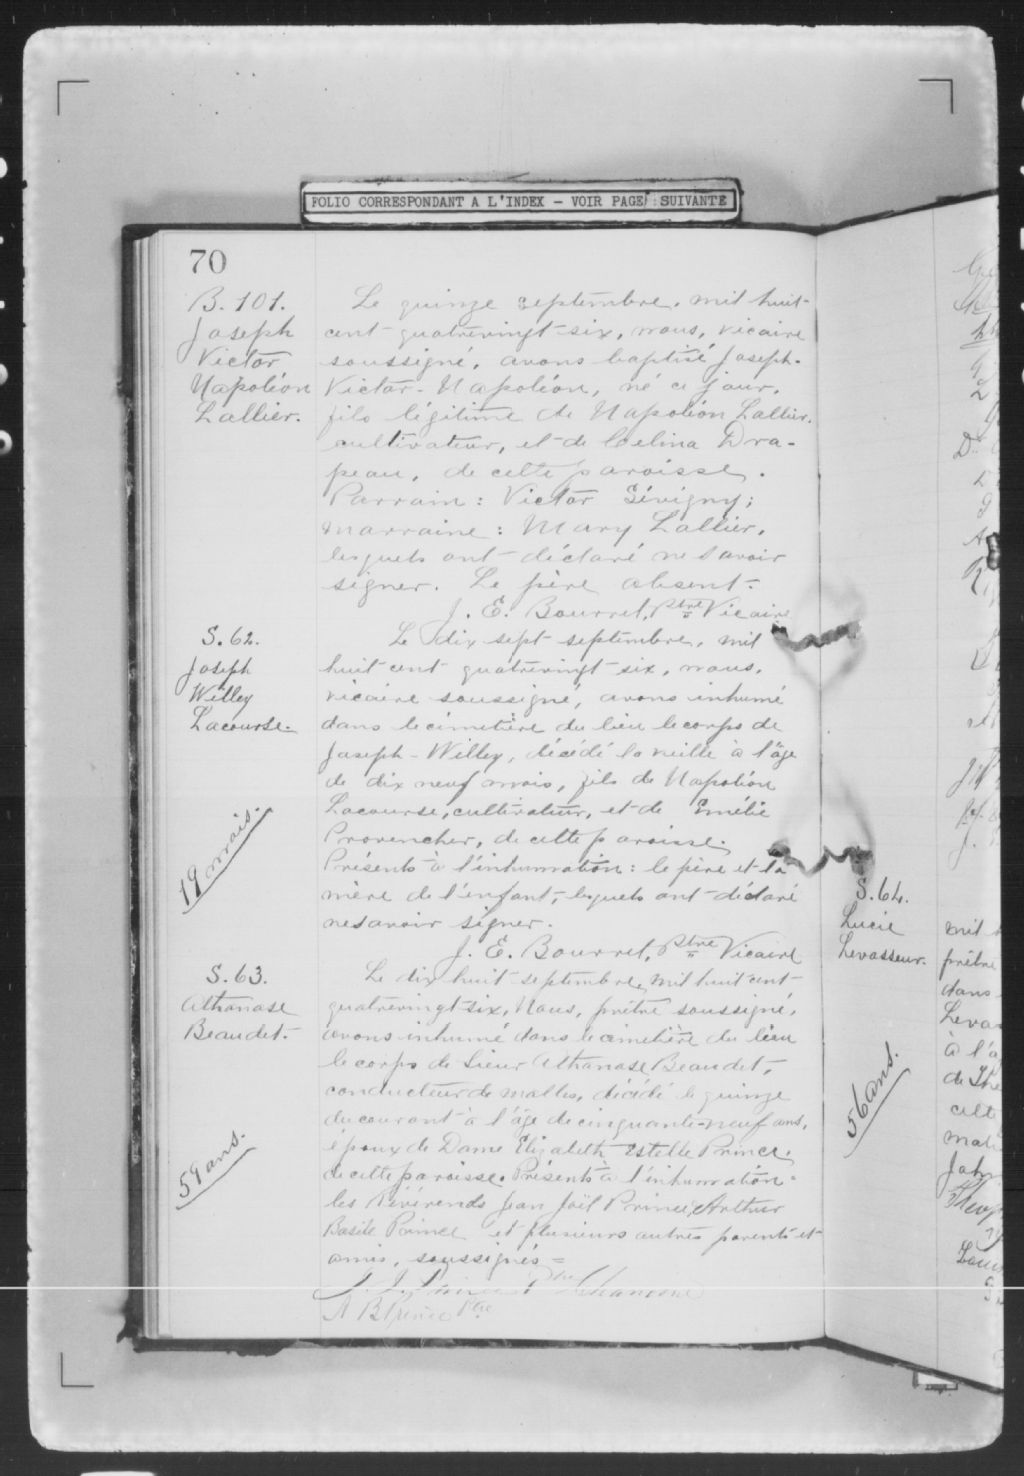 FOLIO CORRESPONDANT A L'INDEX - VOIR PAGE SUIVANTE
70
B. 101.
Joseph
Victor
Napoléon
Lallier.
Le quinze septembre, mil huit-
cent quatrevingt-six, nous, vicaire
soussigné, avons baptisé Joseph-
Victor-Napoléon, né ce jour,
fils légitime de Napoléon Lallier,
cultivateur, et de Coelina Dra-
peau, de cette paroisse.
Parrain: Victor Sévigny;
marraine: Mary Lallier,
lesquels ont déclaré ne savoir
signer. Le père absent.
J. E. Bourret, Ptre Vicaire
S. 62.
Joseph
Willey
Lacourse.
19 mois.
Le dix sept septembre, mil
huit cent quatrevingt-six, nous,
vicaire soussigné, avons inhumé
dans le cimetière du lieu le corps de
Joseph-Willey, décédé la veille à l'âge
de dix neuf mois, fils de Napoléon
Lacourse, cultivateur, et de Emélie
Provencher, de cette paroisse.
Présents à l'inhumation: le père et la
mère de l'enfant, lesquels ont déclaré
ne savoir signer.
J. E. Bourret, Ptre Vicaire
S. 63.
Athanase
Beaudet.
59 ans.
Le dix huit septembre, mil huit cent
quatrevingt-six, Nous, prêtre soussigné,
avons inhumé dans le cimetière du lieu
le corps de Sieur Athanase Beaudet,
conducteur de malles, décédé le quinze
du courant à l'âge de cinquante-neuf ans,
époux de Dame Elizabeth Estelle Prince.
de cette paroisse. Présents à l'inhumation
les Révérends Jean Joël Prince, Arthur
Basile Prince et plusieurs autres parents et
amis, soussignés =
J. J. Prince Ptre Chanoine
A B Prince Ptre
S. 64.
Lucie
Levasseur.
56 ans.
mil
prêtre
dans
Leva
à l'â
de Thé
cult